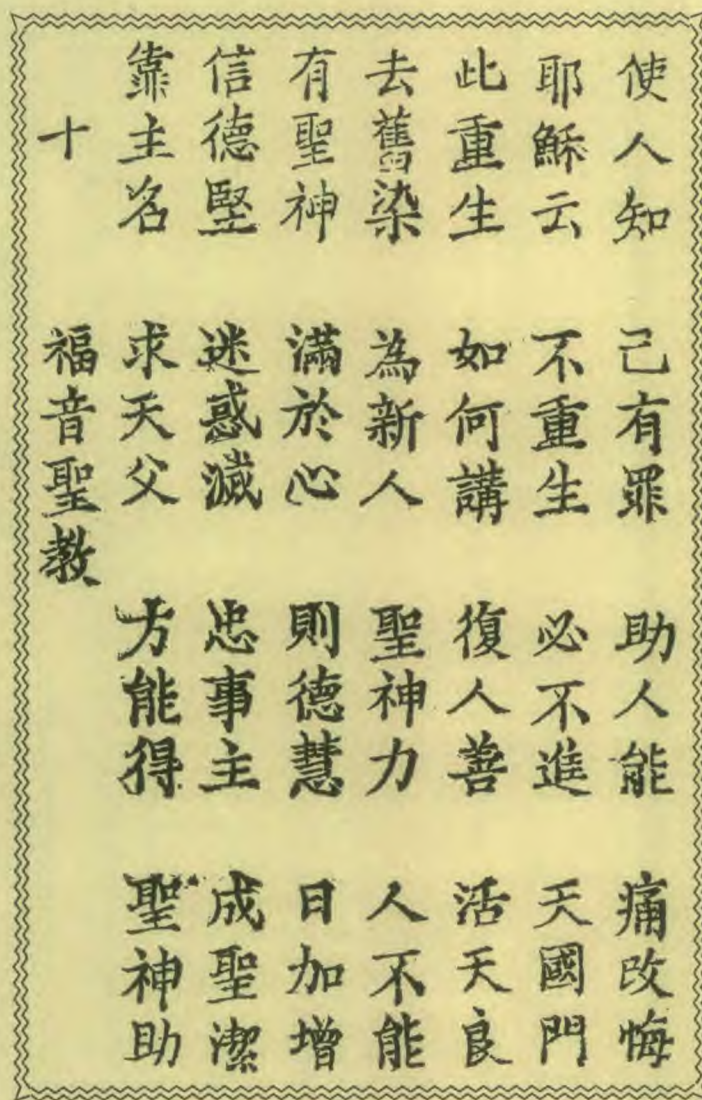 使人知 己有罪 助人能 痛改悔
耶穌云 不重生 必不進 天國門
此重生 如何講 復人善 活天良
去舊染 為新人 聖神力 人不能
有聖神 滿於心 則德慧 日加增
信德堅 迷惑滅 忠事主 成聖潔
靠主名 求天父 方能得 聖神助
十 福音聖教